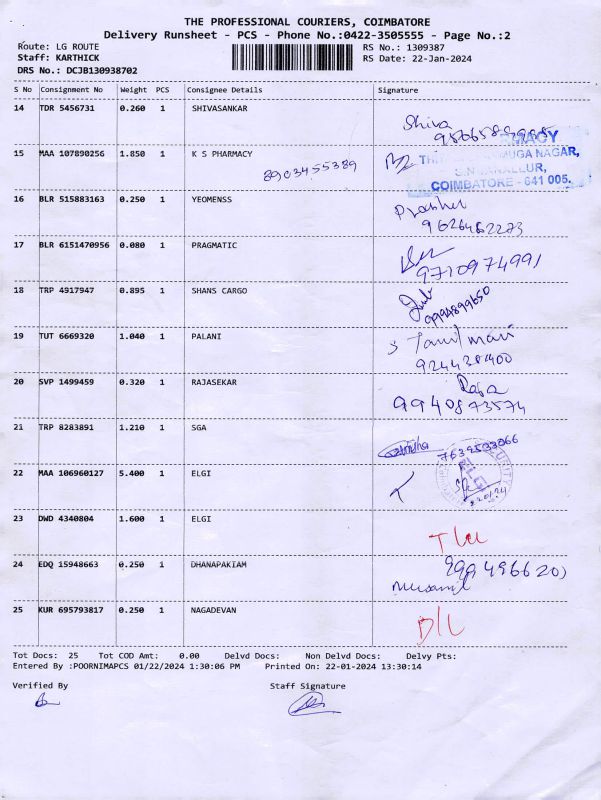 THE PROFESSIONAL COURIERS, COIMBATORE
Delivery Runsheet - PCS - Phone No.:0422-3505555 - Page No.:2
Route: LG ROUTE RS No.: 1309387
Staff: KARTHICK RS Date: 22-Jan-2024
DRS No.: DCJB130938702
S No Consignment No Weight PCS Consignee Details Signature
14 TDR 5456731 0.260 1 SHIVASANKAR
Shiva
15 MAA 107890256 1.850 1 K S PHARMACY
8903455389
NAGAR,
COIMBATORE - 641 005.
16 BLR 515883163 0.250 1 YEOMENSS
9626462273
17 BLR 6151470956 0.080 1 PRAGMATIC
9710974991
18 TRP 4917947 0.895 1 SHANS CARGO
9994899650
19 TUT 6669320 1.040 1 PALANI
S Tamilmani
20 SVP 1499459 0.320 1 RAJASEKAR
Raja
9940873574
21 TRP 8283891 1.210 1 SGA
22 MAA 106960127 5.400 1 ELGI
ELGI
23 DWD 4340804 1.600 1 ELGI
24 EDQ 15948663 0.250 1 DHANAPAKIAM
25 KUR 695793817 0.250 1 NAGADEVAN
D/L
Tot Docs: 25 Tot COD Amt: 0.00 Delvd Docs: Non Delvd Docs: Delvy Pts:
Entered By :POORNIMAPCS 01/22/2024 1:30:06 PM Printed On: 22-01-2024 13:30:14
Verified By Staff Signature